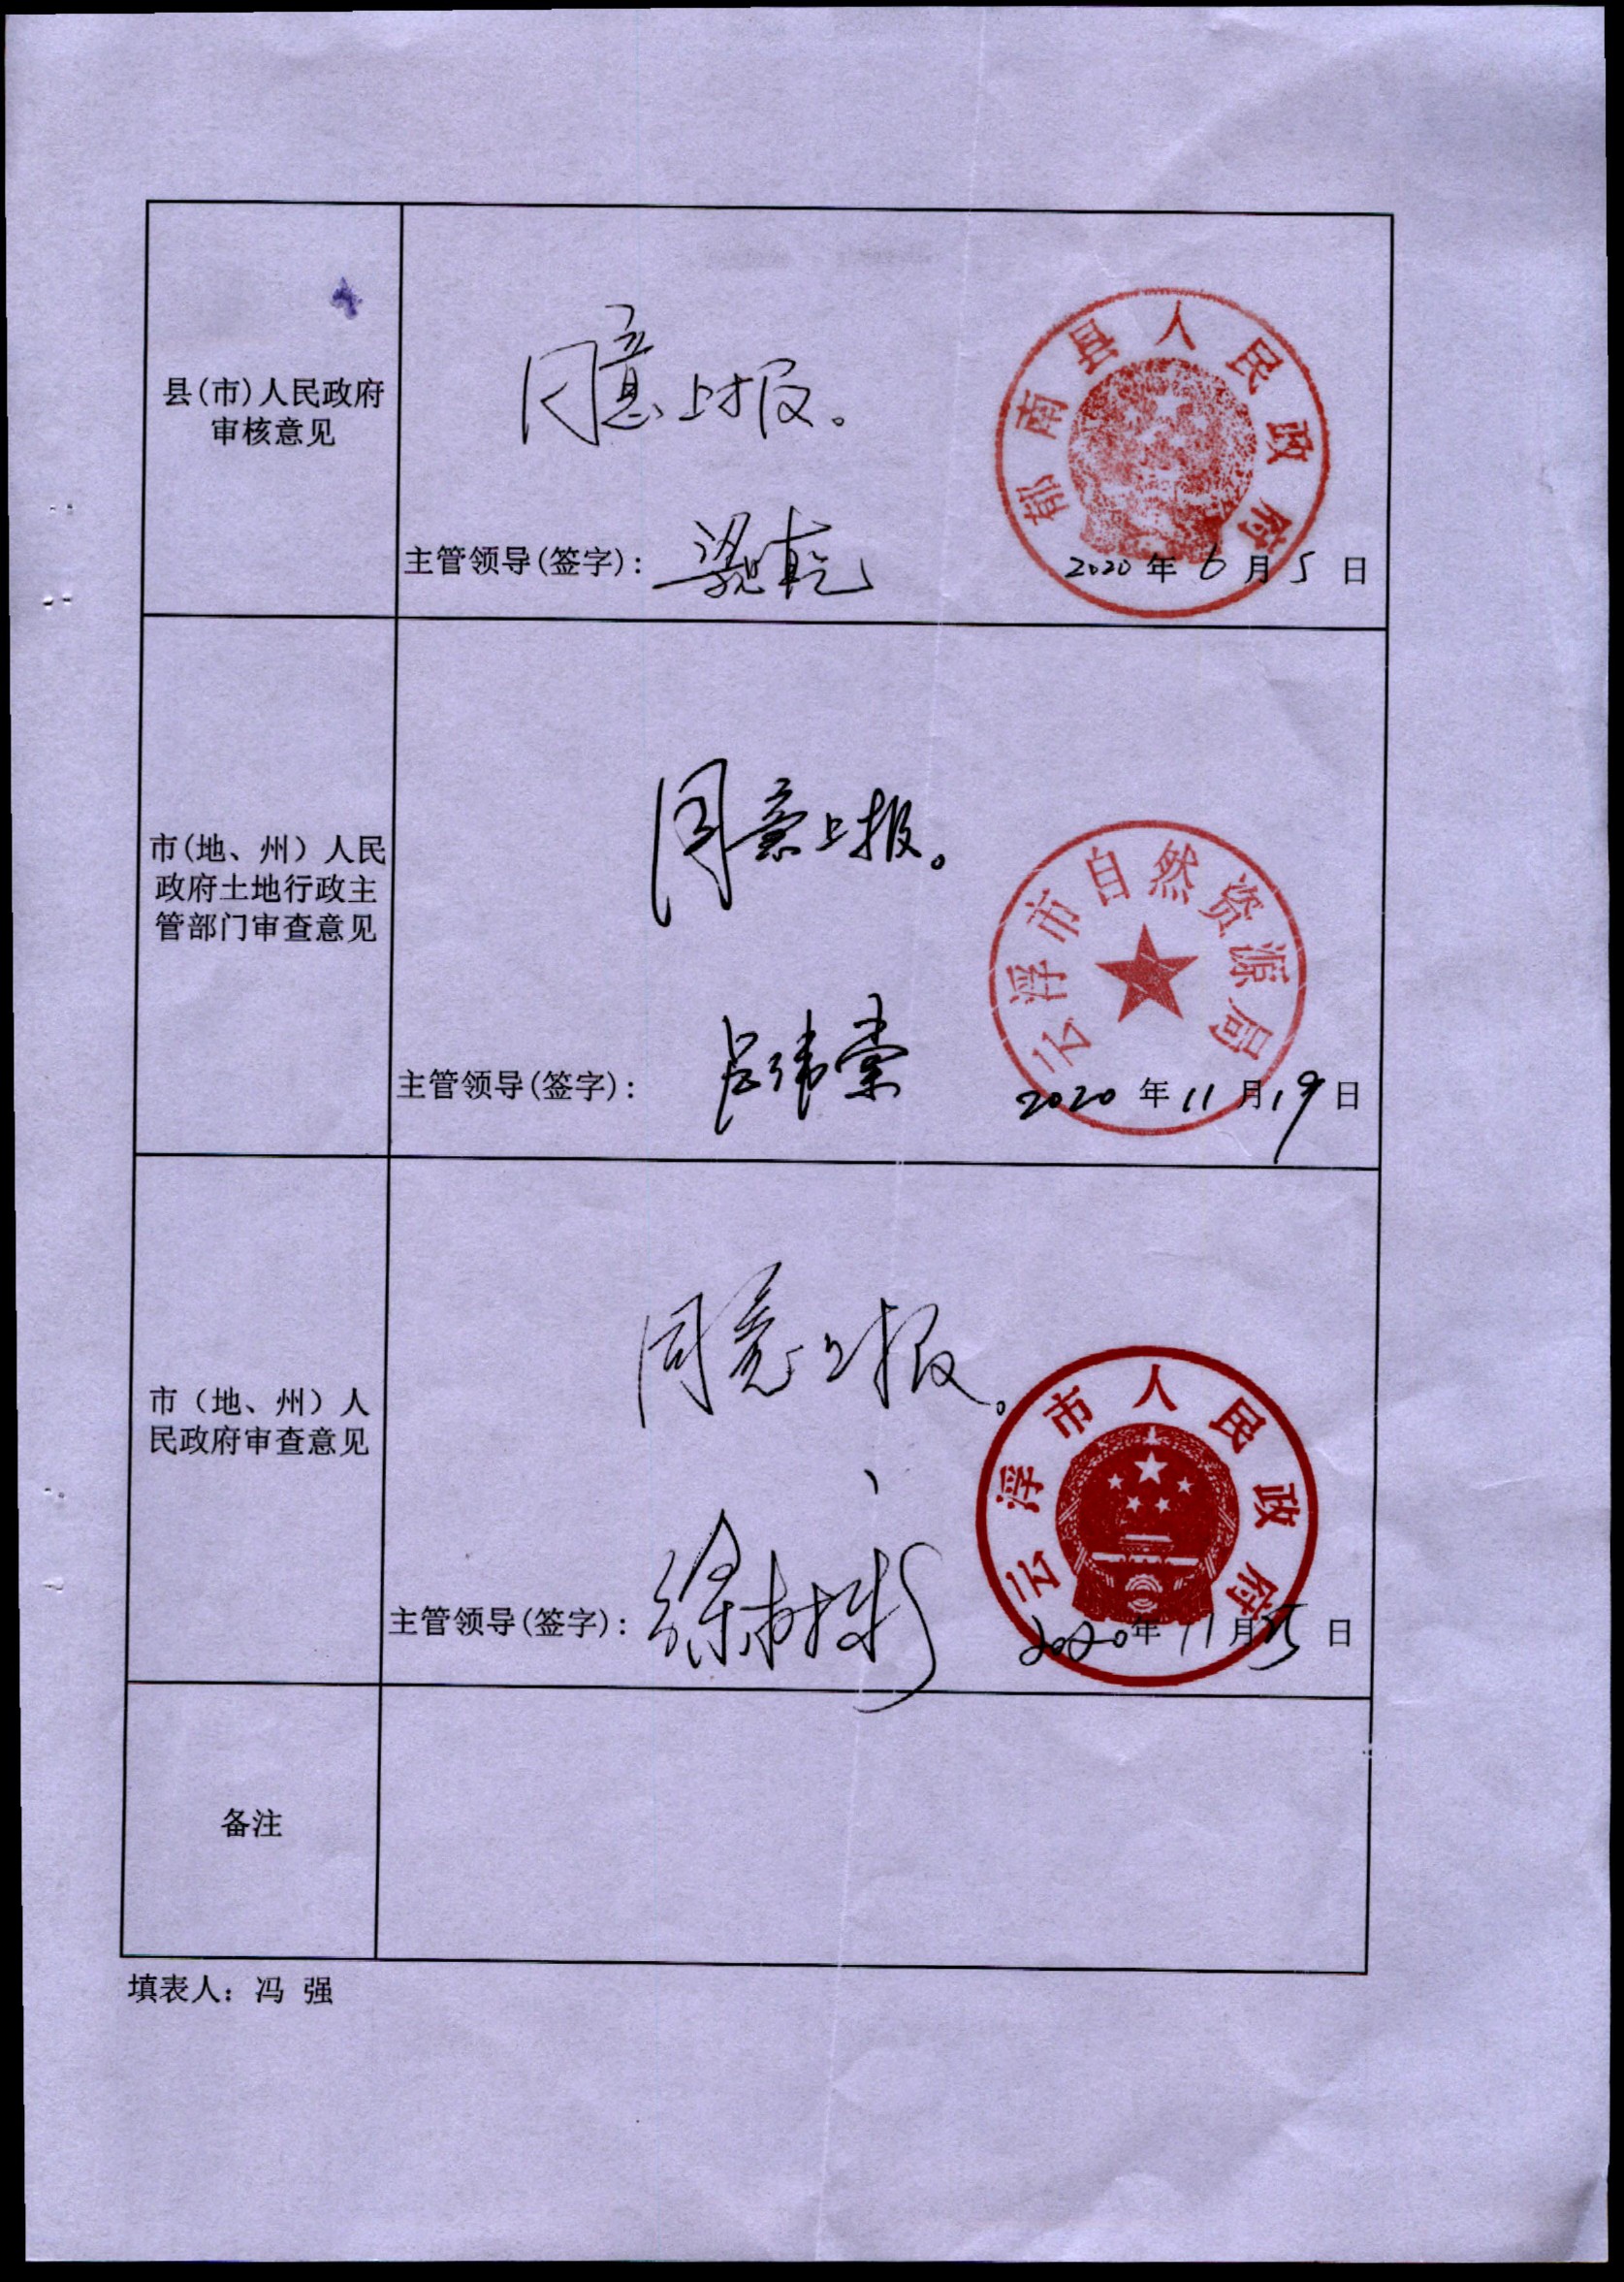 县(市)人民政府
审核意见
同意上报。
郁南县人民政府
主管领导(签字):
2020年6月5日
市(地、州)人民
政府土地行政主
管部门审查意见
同意上报。
云浮市自然资源局
主管领导(签字):
2020年11月19日
市(地、州)人
民政府审查意见
同意上报。
云浮市人民政府
主管领导(签字):
2020年11月25日
备注
填表人:冯 强